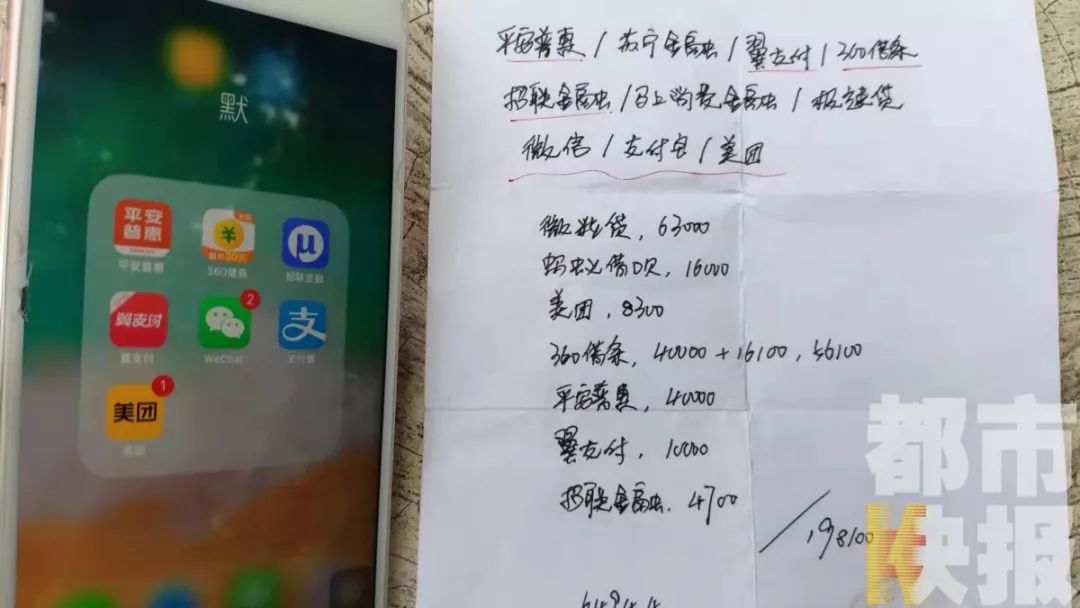 默
平安
普惠
平安普惠
360借条
招联金融
翼支付
翼支付
2
WeChat
支
支付宝
1
美团
美团
平安普惠 / 苏宁金融 / 翼支付 / 360借条
招联金融 / 马上消费金融 / 极速贷
微信 / 支付宝 / 美团
微粒贷，63000
蚂蚁借呗，16000
美团，8300
360借条，40000+16100，56100
平安普惠，40000
翼支付，10000
招联金融，4700
198100
都市
快报